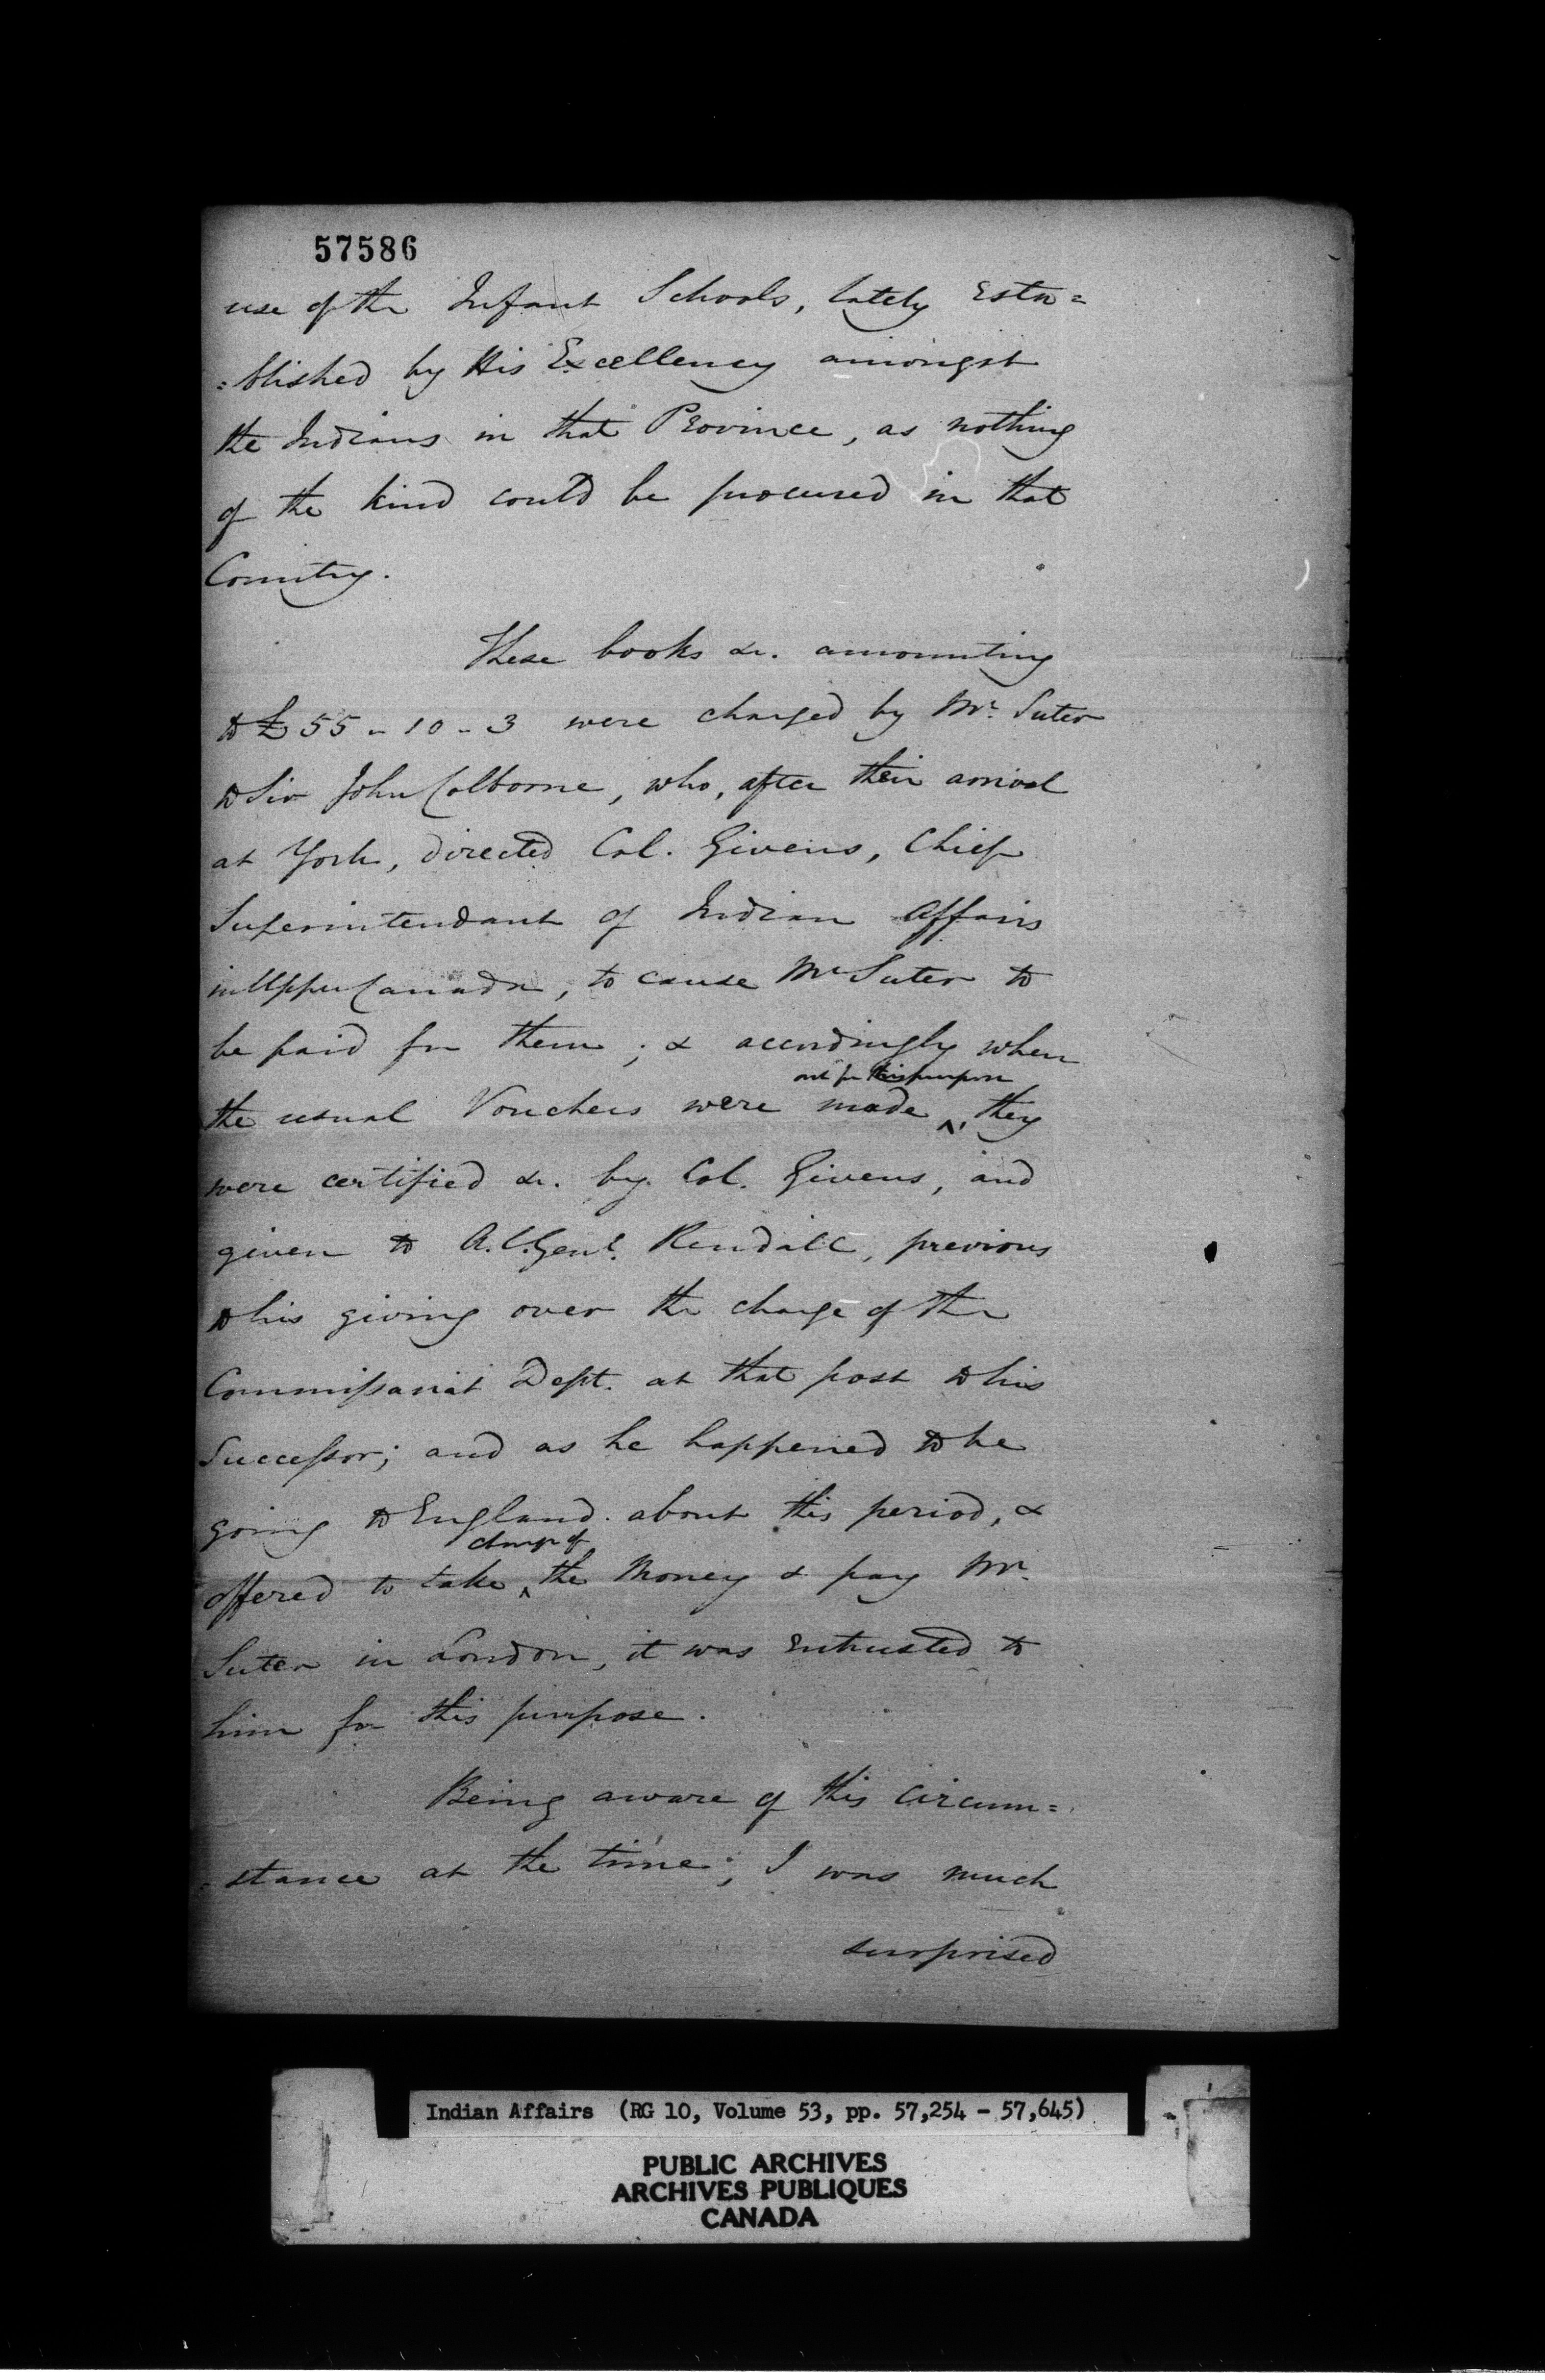 57586
use of the Infant Schools, lately Esta=
=blished by His Excellency amongst
the Indians in that Province, as nothing
of the kind could be procured in that
Country.
These books &c. amounting
to £55-10-3 were charged by Mr. Suter
to Sir John Colborne, who, after their arrival
at York, directed Col. Givens, Chief
Superintendant of Indian Affairs
in Upper Canada, to cause Mr Suter to
be paid for them; & accordingly when
out for this purpose
the usual Vouchers were made ^, they
were certified &c. by Col. Givens, and
given to A.C.Genl. Rendall, previous
to his giving over the charge of the
Commissariat Dept. at that post to his
Successor; and as he happened to be
going to England about this period, &
charge of
offered to take ^ the Money & pay Mr.
Suter in London, it was entrusted to
him for this purpose.
Being aware of this circum=
=stance at the time; I was much
surprised
Indian Affairs (RG 10, Volume 53, pp. 57,254 - 57,645)
PUBLIC ARCHIVES
ARCHIVES PUBLIQUES
CANADA